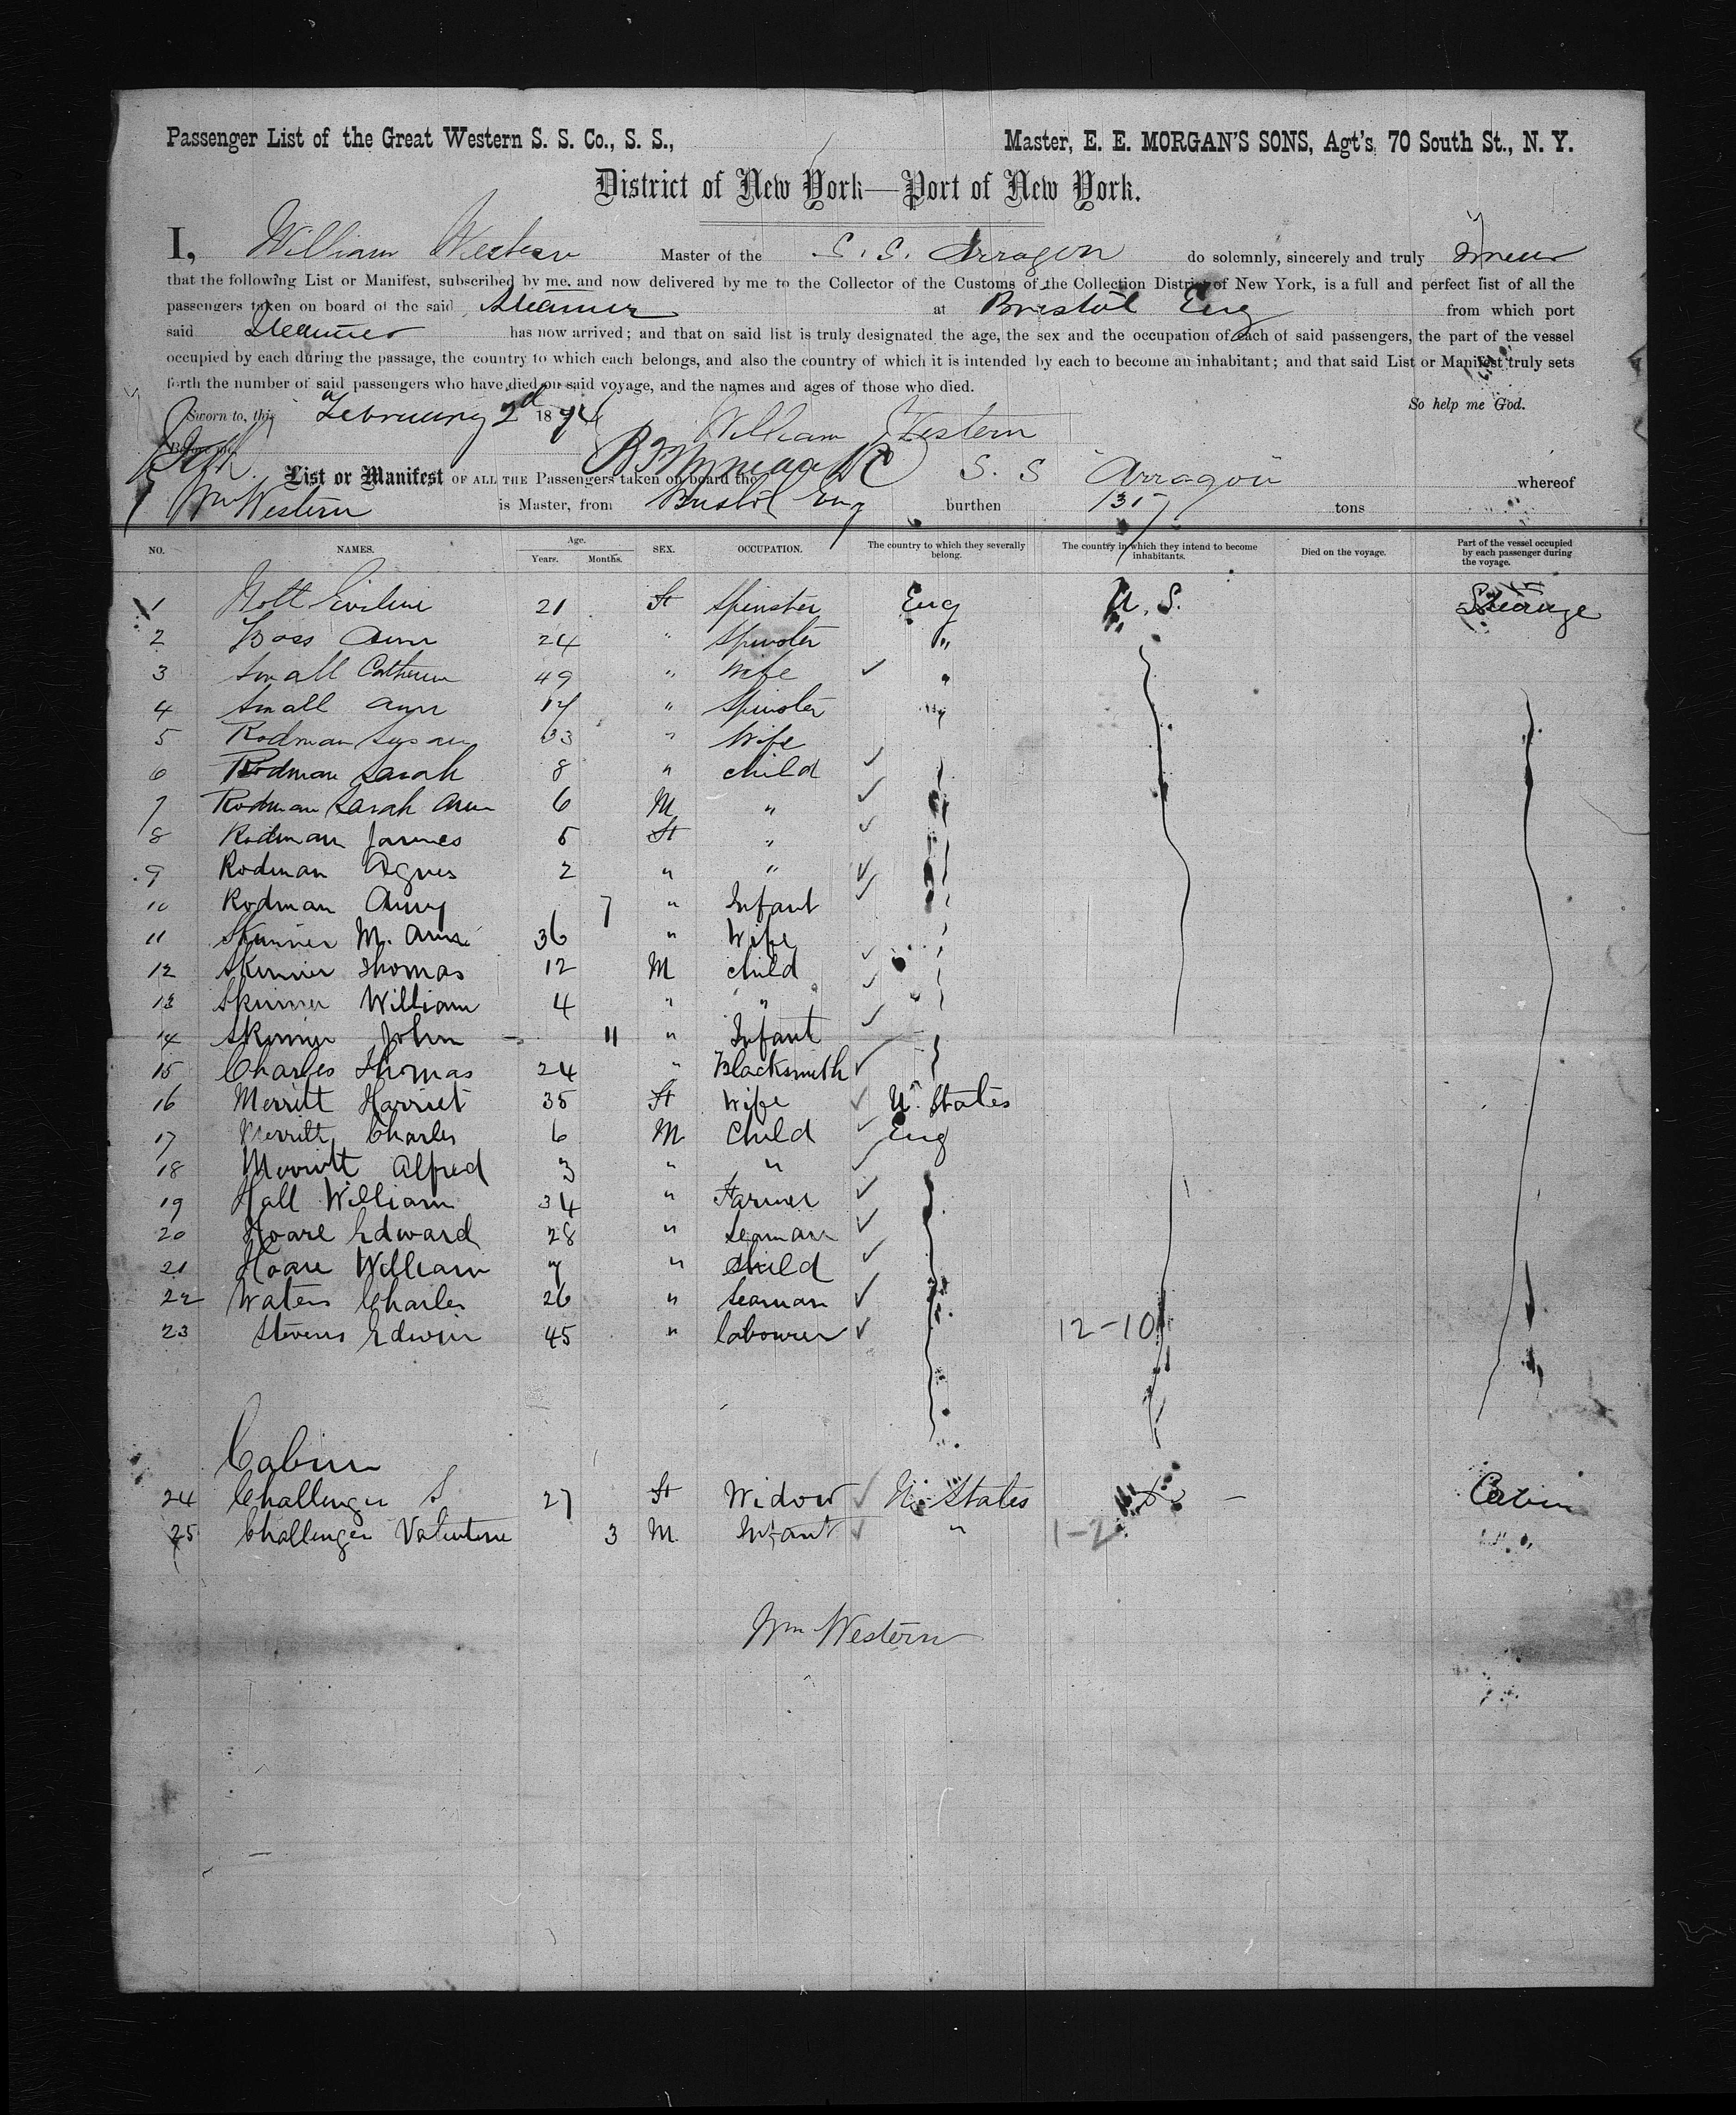 Passenger List of the Great Western S. S. Co., S. S., Master, E. E. MORGAN'S SONS, Agt's, 70 South St., N. Y.
District of New York—Port of New York.
I, William Western Master of the S. S. Arragon do solemnly, sincerely and truly swear
that the following List or Manifest, subscribed by me, and now delivered by me to the Collector of the Customs of the Collection District of New York, is a full and perfect list of all the
passengers taken on board of the said Steamer at Bristol Eng from which port
said Steamer has now arrived; and that on said list is truly designated the age, the sex and the occupation of each of said passengers, the part of the vessel
occupied by each during the passage, the country to which each belongs, and also the country of which it is intended by each to become an inhabitant; and that said List or Manifest truly sets
forth the number of said passengers who have died on said voyage, and the names and ages of those who died.
So help me God.
Sworn to, this February 2d 187
William Western
Before me,
List or Manifest OF ALL THE Passengers taken on board the S. S Arragon whereof
Wm Western is Master, from Bristol Eng burthen 1317 tons
NO. NAMES. Age. Years. Months. SEX. OCCUPATION. The country to which they severally belong. The country in which they intend to become inhabitants. Died on the voyage. Part of the vessel occupied by each passenger during the voyage.
1 21 Spinster Eng U. S. Steerage
2 Ann 24 " Spinster "
3 Small Catherine 49 " Wife "
4 Small Ann 17 " Spinster "
5 Rodman Susan 33 " Wife
6 Rodman Sarah 8 " child
7 Rodman Sarah Ann 6 M "
8 Rodman James 5 "
9 Rodman Agnes 2 " "
10 Rodman Amy 7 " Infant
11 Skinner M. Ann 36 " Wife
12 Skinner Thomas 12 M child
13 Skinner William 4 " "
14 Skinner John 11 " Infant
15 Charles Thomas 24 " Blacksmith
16 Merritt Harriet 35 Wife U. States
17 Merritt Charles 6 M Child Eng
18 Merritt Alfred 3 " "
19 Hall William 34 " Farmer
20 Hoare Edward 28 " Seaman
21 Hoare William 7 " Child
22 Waters Charles 26 " Seaman
23 Stevens Edwin 45 " labourer 12-10
Cabin
24 Challenger S 27 Widow U. States Cabin
25 Challenger Valentine 3 M. Infant " 1-2
Wm Western